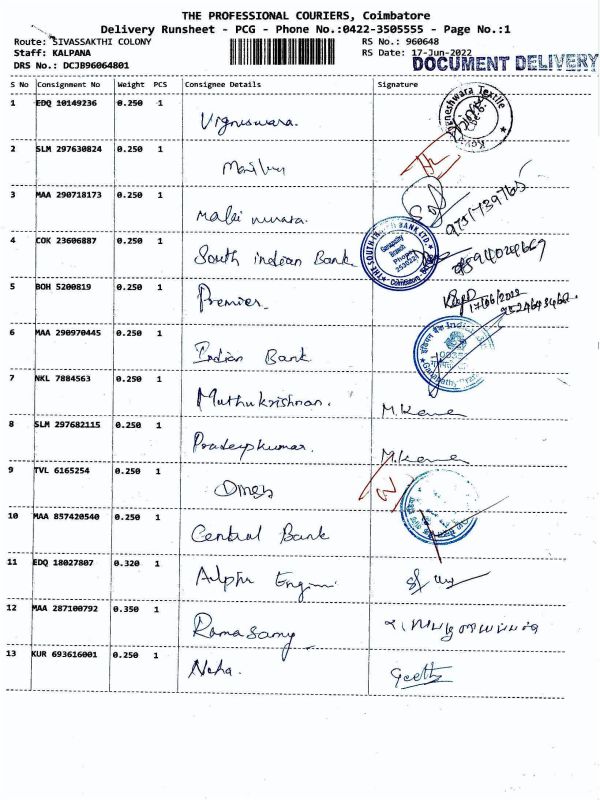 THE PROFESSIONAL COURIERS, Coimbatore
Delivery Runsheet - PCG - Phone No.:0422-3505555 - Page No.:1
Route: SIVASSAKTHI COLONY
Staff: KALPANA
DRS No.: DCJB96064801
RS No.: 960648
RS Date: 17-Jun-2022
DOCUMENT DELIVERY
S No Consignment No Weight PCS Consignee Details Signature
1 EDQ 10149236 0.250 1 Vigneswara.
2 SLM 297630824 0.250 1
3 MAA 290718173 0.250 1
9751739765
4 COK 23606887 0.250 1 South indian Bank
THE SOUTH INDIAN BANK LTD.
Ganapathy
Branch
Phone
5 BOH 5200819 0.250 1 Premier.
17/06/2022
6 MAA 290970445 0.250 1 Indian Bank
7 NKL 7884563 0.250 1 Muthukrishnan.
8 SLM 297682115 0.250 1 Pradeepkumar.
9 TVL 6165254 0.250 1
10 MAA 857420540 0.250 1 Central Bank
11 EDQ 18027807 0.320 1
12 MAA 287100792 0.350 1 Ramasamy
13 KUR 693616001 0.250 1 Neha. Geetha